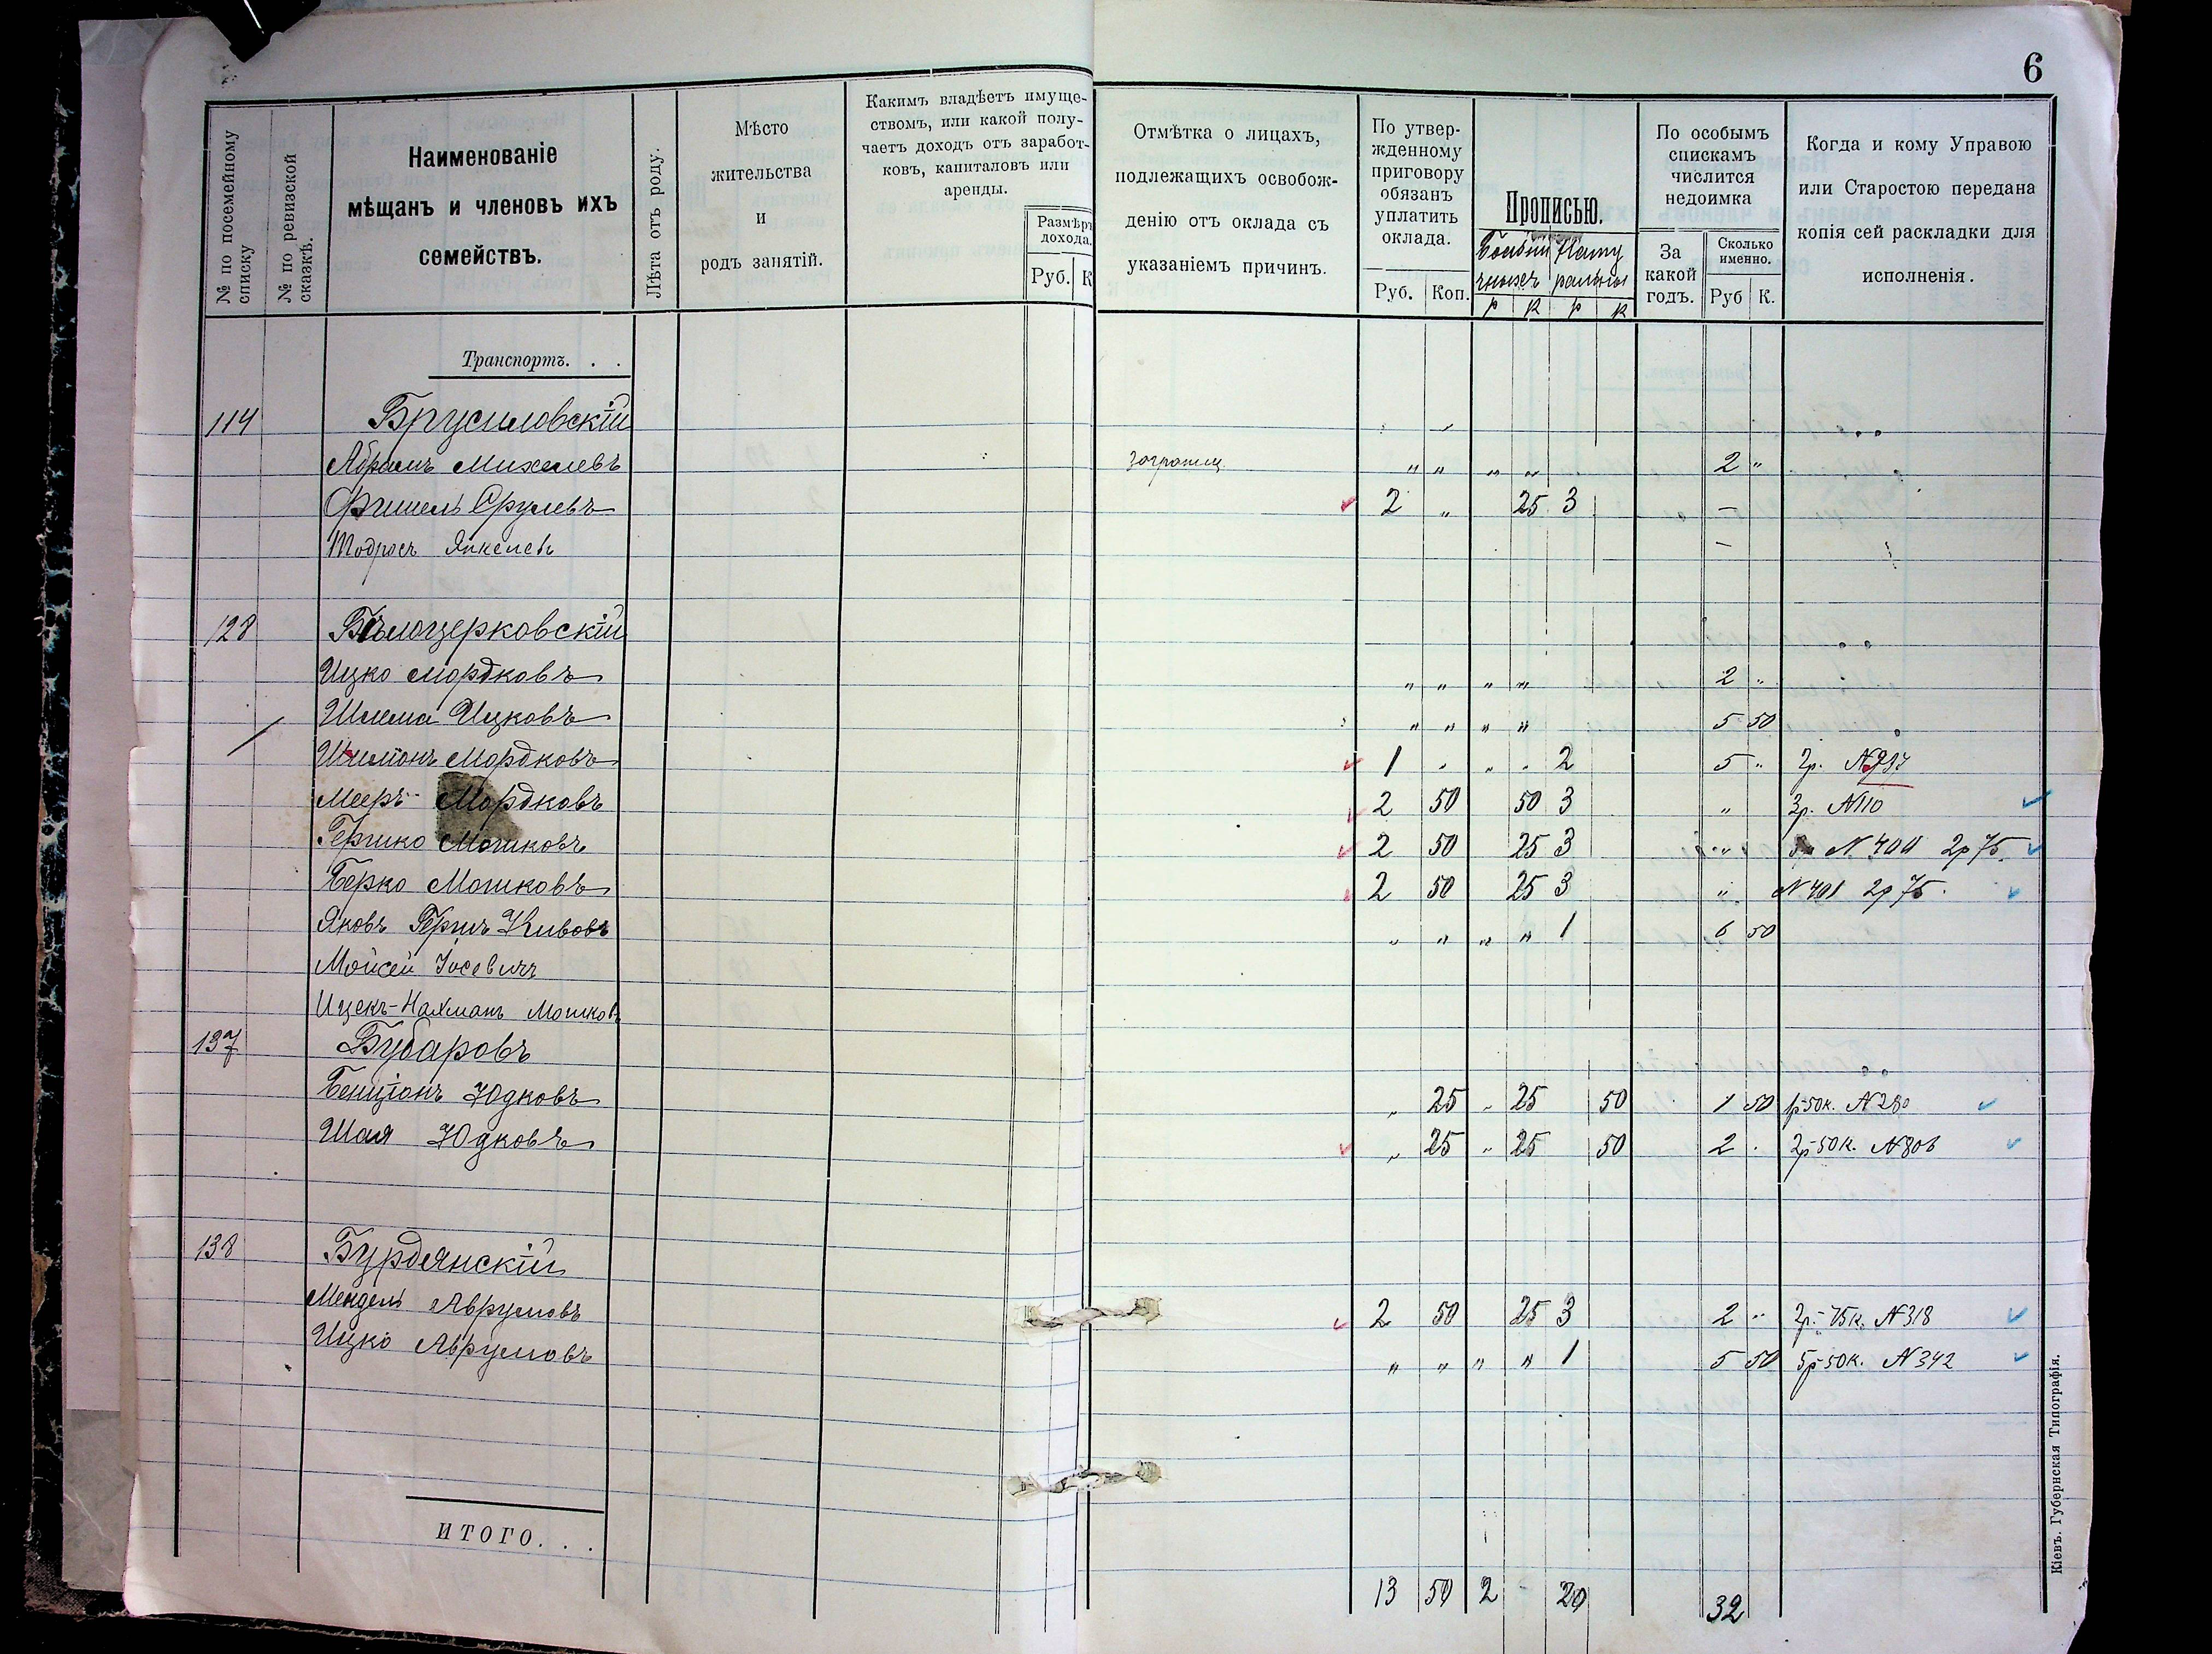 6
№ по посемейному списку
№ по ревизской сказкѣ.
Наименованіе
мѣщанъ и членовъ ихъ
семействъ.
Лѣта отъ роду.
Мѣсто
жительства
и
родъ занятій.
Какимъ владѣетъ имуще-
ствомъ, или какой полу-
чаетъ доходъ отъ заработ-
ковъ, капиталовъ или
аренды.
Размѣръ
дохода.
Руб. К
Отмѣтка о лицахъ,
подлежащихъ освобож-
денію отъ оклада съ
указаніемъ причинъ.
По утвер-
жденному
приговору
обязанъ
уплатить
оклада.
Руб. Коп.
Прописью.
р к р к
По особымъ
спискамъ
числится
недоимка
За
какой
годъ.
Сколько
именно.
Руб К.
Когда и кому Управою
или Старостою передана
копія сей раскладки для
исполненія.
Транспортъ. . .
114 Брусиловскій
Абрамъ Михелевъ заграниц " " " " 2 "
Фишель Срулевъ 2 " 25 3 —
Тодрос Янкелевъ —
128 Бѣлоцерковскій
Ицко Мордковъ " " " " 2 "
Шлема Ицковъ " " " " 5 50
Шлиомъ Мордковъ 1 " " " 2 5 "
Мееръ Мордковъ 2 50 50 3 " 3р. №110
Гершко Мошковъ 2 50 25 3 " № 400 2р 75
Берко Мошковъ 2 50 25 3 " № 401 2р 75.
Яковъ Гершъ Кивовъ " " " " 1 6 50
Мойсей Іосевичъ
Ицекъ-Нахманъ Мошковъ
137 Бударовъ
Бенціонъ Юдковъ " 25 " 25 50 1 50 1р 50к. №280
Шая Юдковъ " 25 " 25 50 2 . 2р 50к. №806
138 Бурдянскій
Мендель Аврумовъ 2 50 25 3 2 " 2р. 75к. №318
Ицко Аврумовъ " " " " 1 5 50 5р 50к. №342
ИТОГО. . .
13 50 2 - 20 32
Кіевъ. Губернская Типографія.